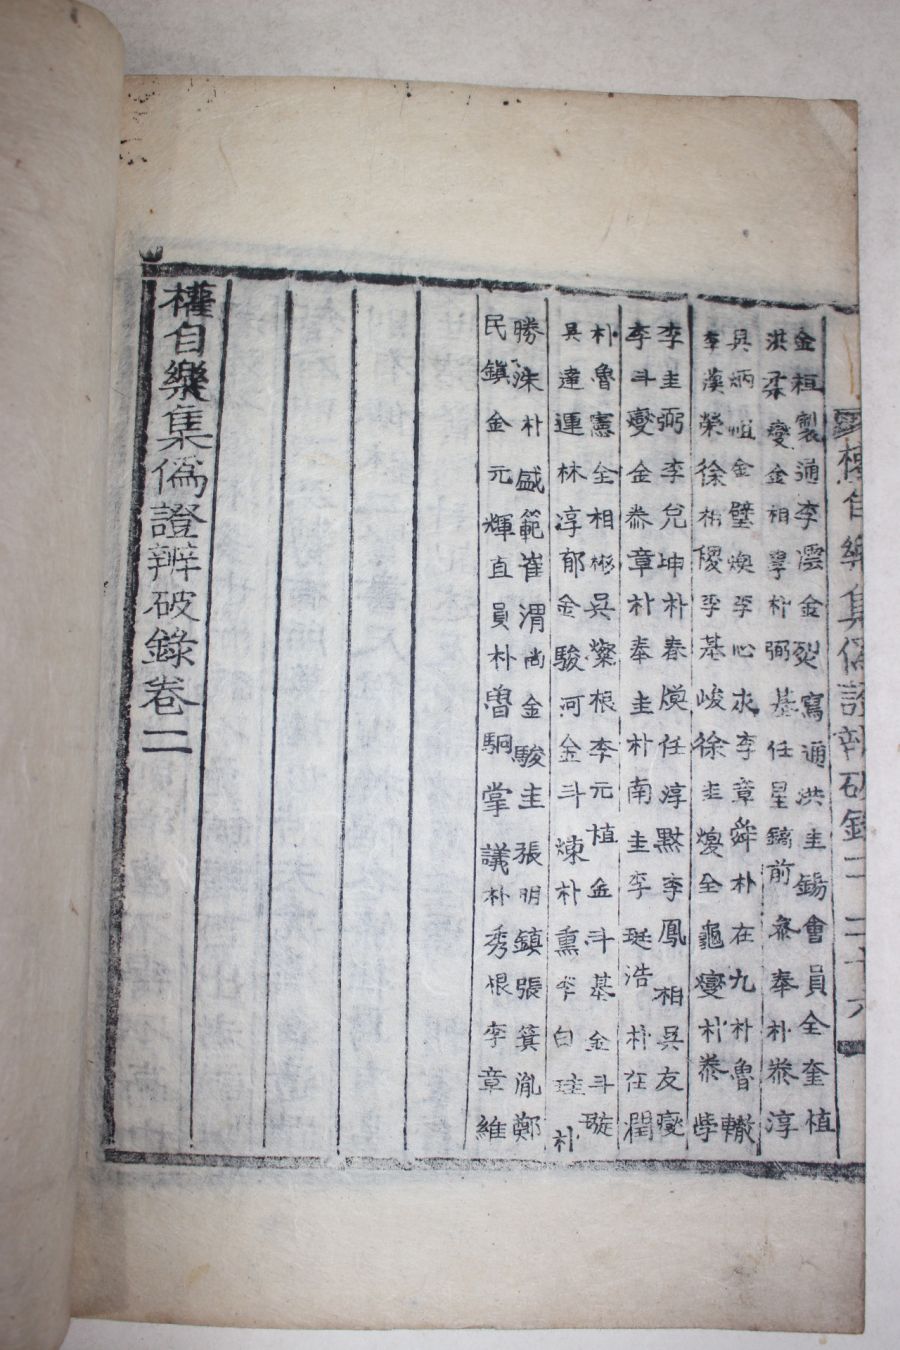 權自樂集僞證辨破錄二 二十六
金桓製通李澐金烈寫通洪圭錫會員全奎植
洪柔燮金相孚朴弼基任星鎬前參奉朴泰淳
吳炳 金璧煥李心求李章舜朴在九朴魯轍
李漢榮徐相稷李基峻徐圭燮全龜燮朴泰學
李圭弼李兌坤朴春煥任淳默李鳳相吳友燮
李斗燮金泰章朴奉圭朴南圭李珽浩朴在潤
朴魯憲全相彬吳燦根李元植金斗基金斗璇
吳達運林淳郁金駿河金斗煉朴薰李白珪朴
勝洙朴盛範崔渭尚金駿圭張明鎮張箕胤鄭
民鎮金元輝直員朴魯駉掌議朴秀根李章維
權自樂集僞證辨破錄卷二